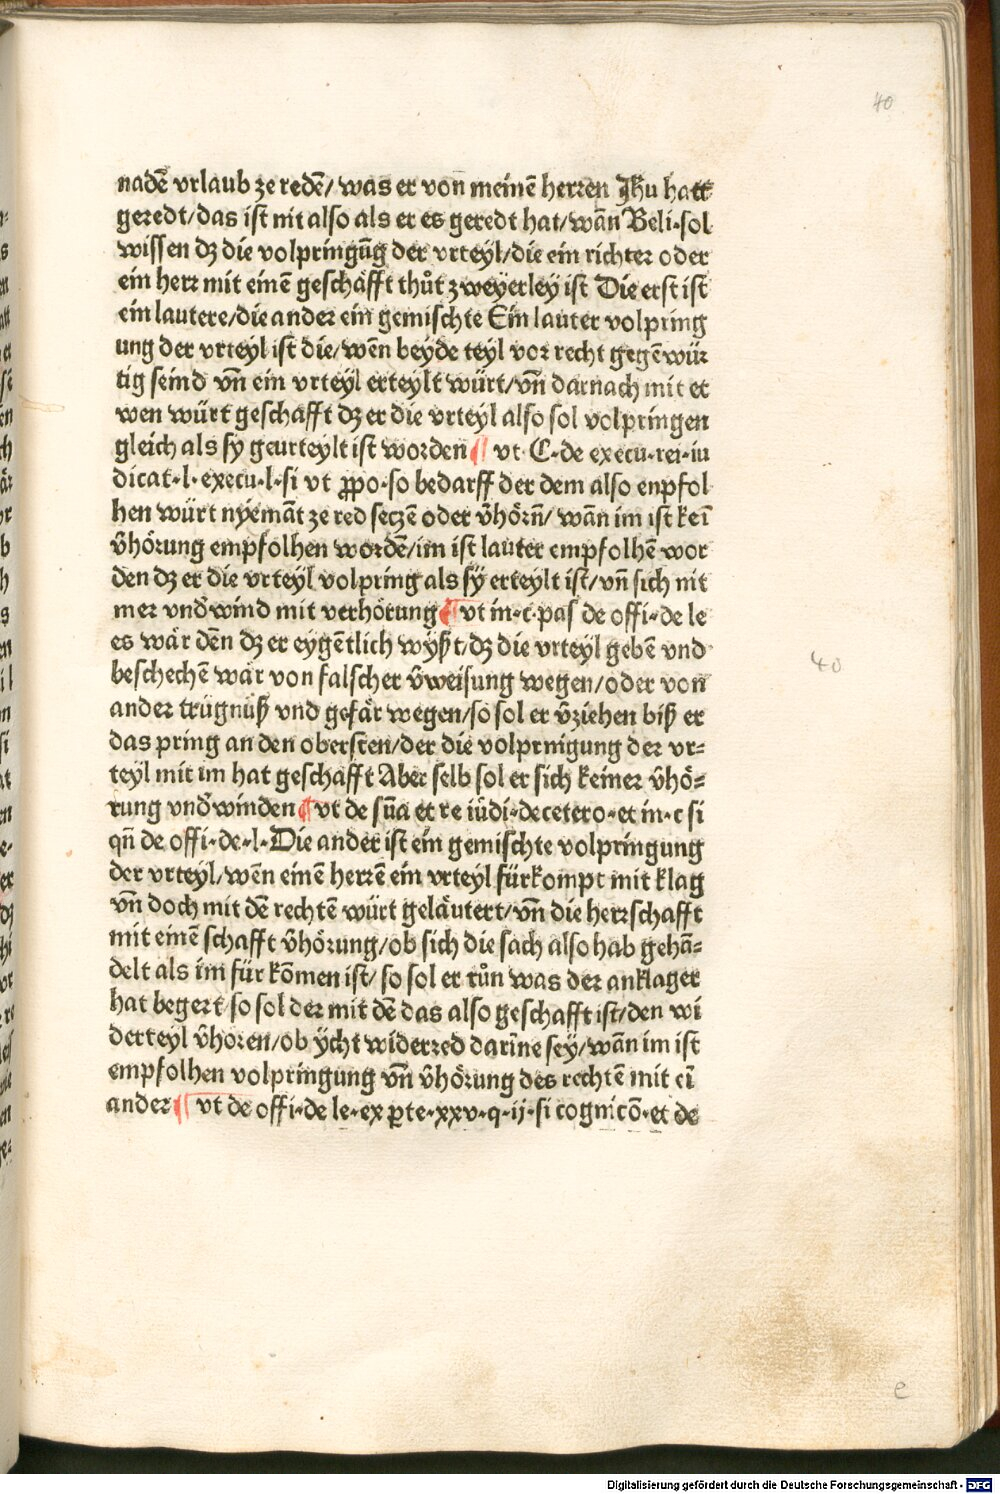 40
nadẽ vrlaub ze redẽ/ was er von meinẽ herren Jhu hatt
geredt/das ist nit also als er es geredt hat/wañ Beli·sol
wissen dz die volpringũg der vrteyl/die ein richter oder
ein herr mit einẽ geschäfft thůt zweyerley ist Die erst ist
ein lautere/die ander ein gemischte Ein lauter volpring
ung der vrteyl ist die/wẽn beyde teyl vor recht gegẽwür
tig seind vñ ein vrteyl erteylt würt/vñ darnach mit et
wen würt geschafft dz er die vrteyl also sol volpringen
gleich als sy geurteylt ist worden ¶ vt· C·de execu·rei·iu
dicat·l·execu·l·si vt ꝓpo·so bedarff der dem also enpfol
hen würt nyemãt ze red seczẽ oder v̄hörñ/ wañ im ist keī
v̄hörung empfolhen wordẽ/im ist lauter empfolhẽ wor
den dz er die vrteyl volpring als sÿ erteylt ist/vñ sich nit
mer vnd̛wind mit verhörung ¶ vt in·c·pas de offi·de le
es wär dẽn dz er eygẽtlich wyßt/dz die vrteyl gebẽ vnd
beschechẽ wär von falscher v̄weisung wegen/oder von
ander trügnüß vnd gefär wegen/so sol er v̄ziehen biß er
das pring an den obersten/der die volprnigung der vr=
teyl mit im hat geschafft Aber selb sol er sich keiner v̄hö=
rung vnd̛winden ¶ vt de sūa et re iūdi·decetero·et in·c si
qñ de offi·de·l·Die ander ist ein gemischte volpringung
der vrteyl/wẽn einẽ herrẽ ein vrteyl fürkompt mit klag
vñ doch mit dẽ rechtẽ würt geläutert/vñ die herrschafft
mit einẽ schafft v̄hörung/ob sich die sach also hab gehã=
delt als im für kõmen ist/ so sol er tůn was der anklager
hat begert/so sol der mit dẽ das also geschafft ist/den wi
derteyl v̄horen/ob ÿcht widerred dariñe seÿ/wañ im ist
empfolhen volpringung vñ v̄hörung des rechtẽ mit eī
ander ¶ vt de offi·de le·ex ꝑte·xxv·q·ij·si cognicõ·et de
40
e
Digitalisierung gefördert durch die Deutsche Forschungsgemeinschaft - DFG